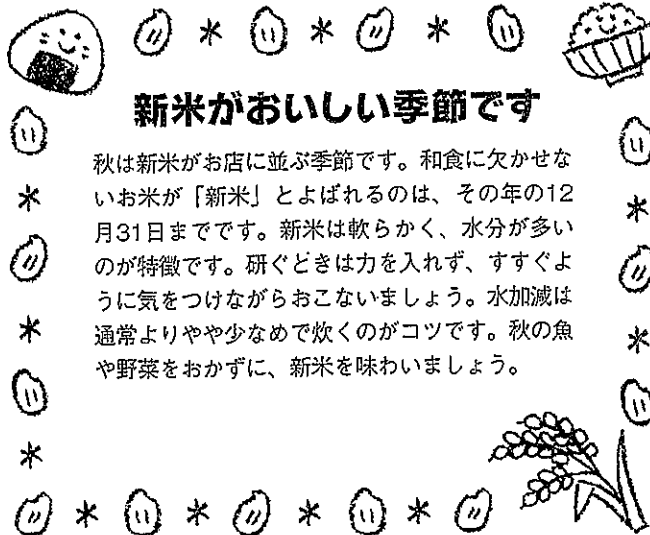 新米がおいしい季節です
秋は新米がお店に並ぶ季節です。和食に欠かせな
いお米が「新米」とよばれるのは、その年の12
月31日までです。新米は軟らかく、水分が多い
のが特徴です。研ぐときは力を入れず、すすぐよ
うに気をつけながらおこないましょう。水加減は
通常よりやや少なめで炊くのがコツです。秋の魚
や野菜をおかずに、新米を味わいましょう。